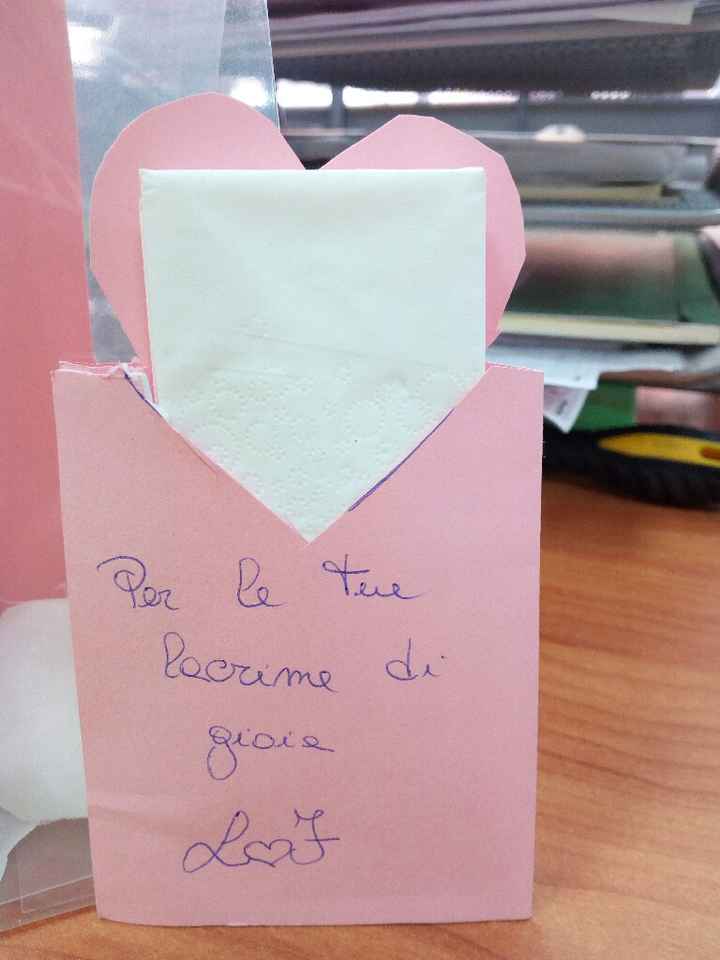 Per le tue
lacrime di
gioia
L♡F